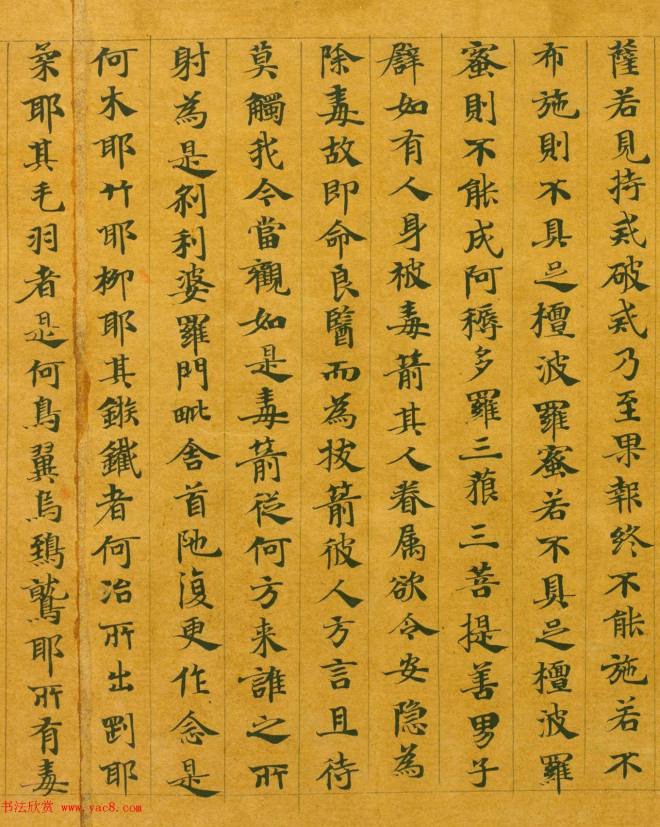 薩若見持戒破戒乃至果報終不能施若不
布施則不具足檀波羅蜜若不具足檀波羅
蜜則不能成阿耨多羅三藐三菩提善男子
辟如有人身被毒箭其人眷属欲令安隱為
除毒故即命良醫而為拔箭彼人方言且待
莫觸我今當觀如是毒箭從何方来誰之所
射為是剎利婆羅門毗舍首陁復更作念是
何木耶竹耶柳耶其鏃鐵者何冶所出剛耶
柔耶其毛羽者是何鳥翼烏鵄鷲耶所有毒
书法欣赏 www.yac8.com